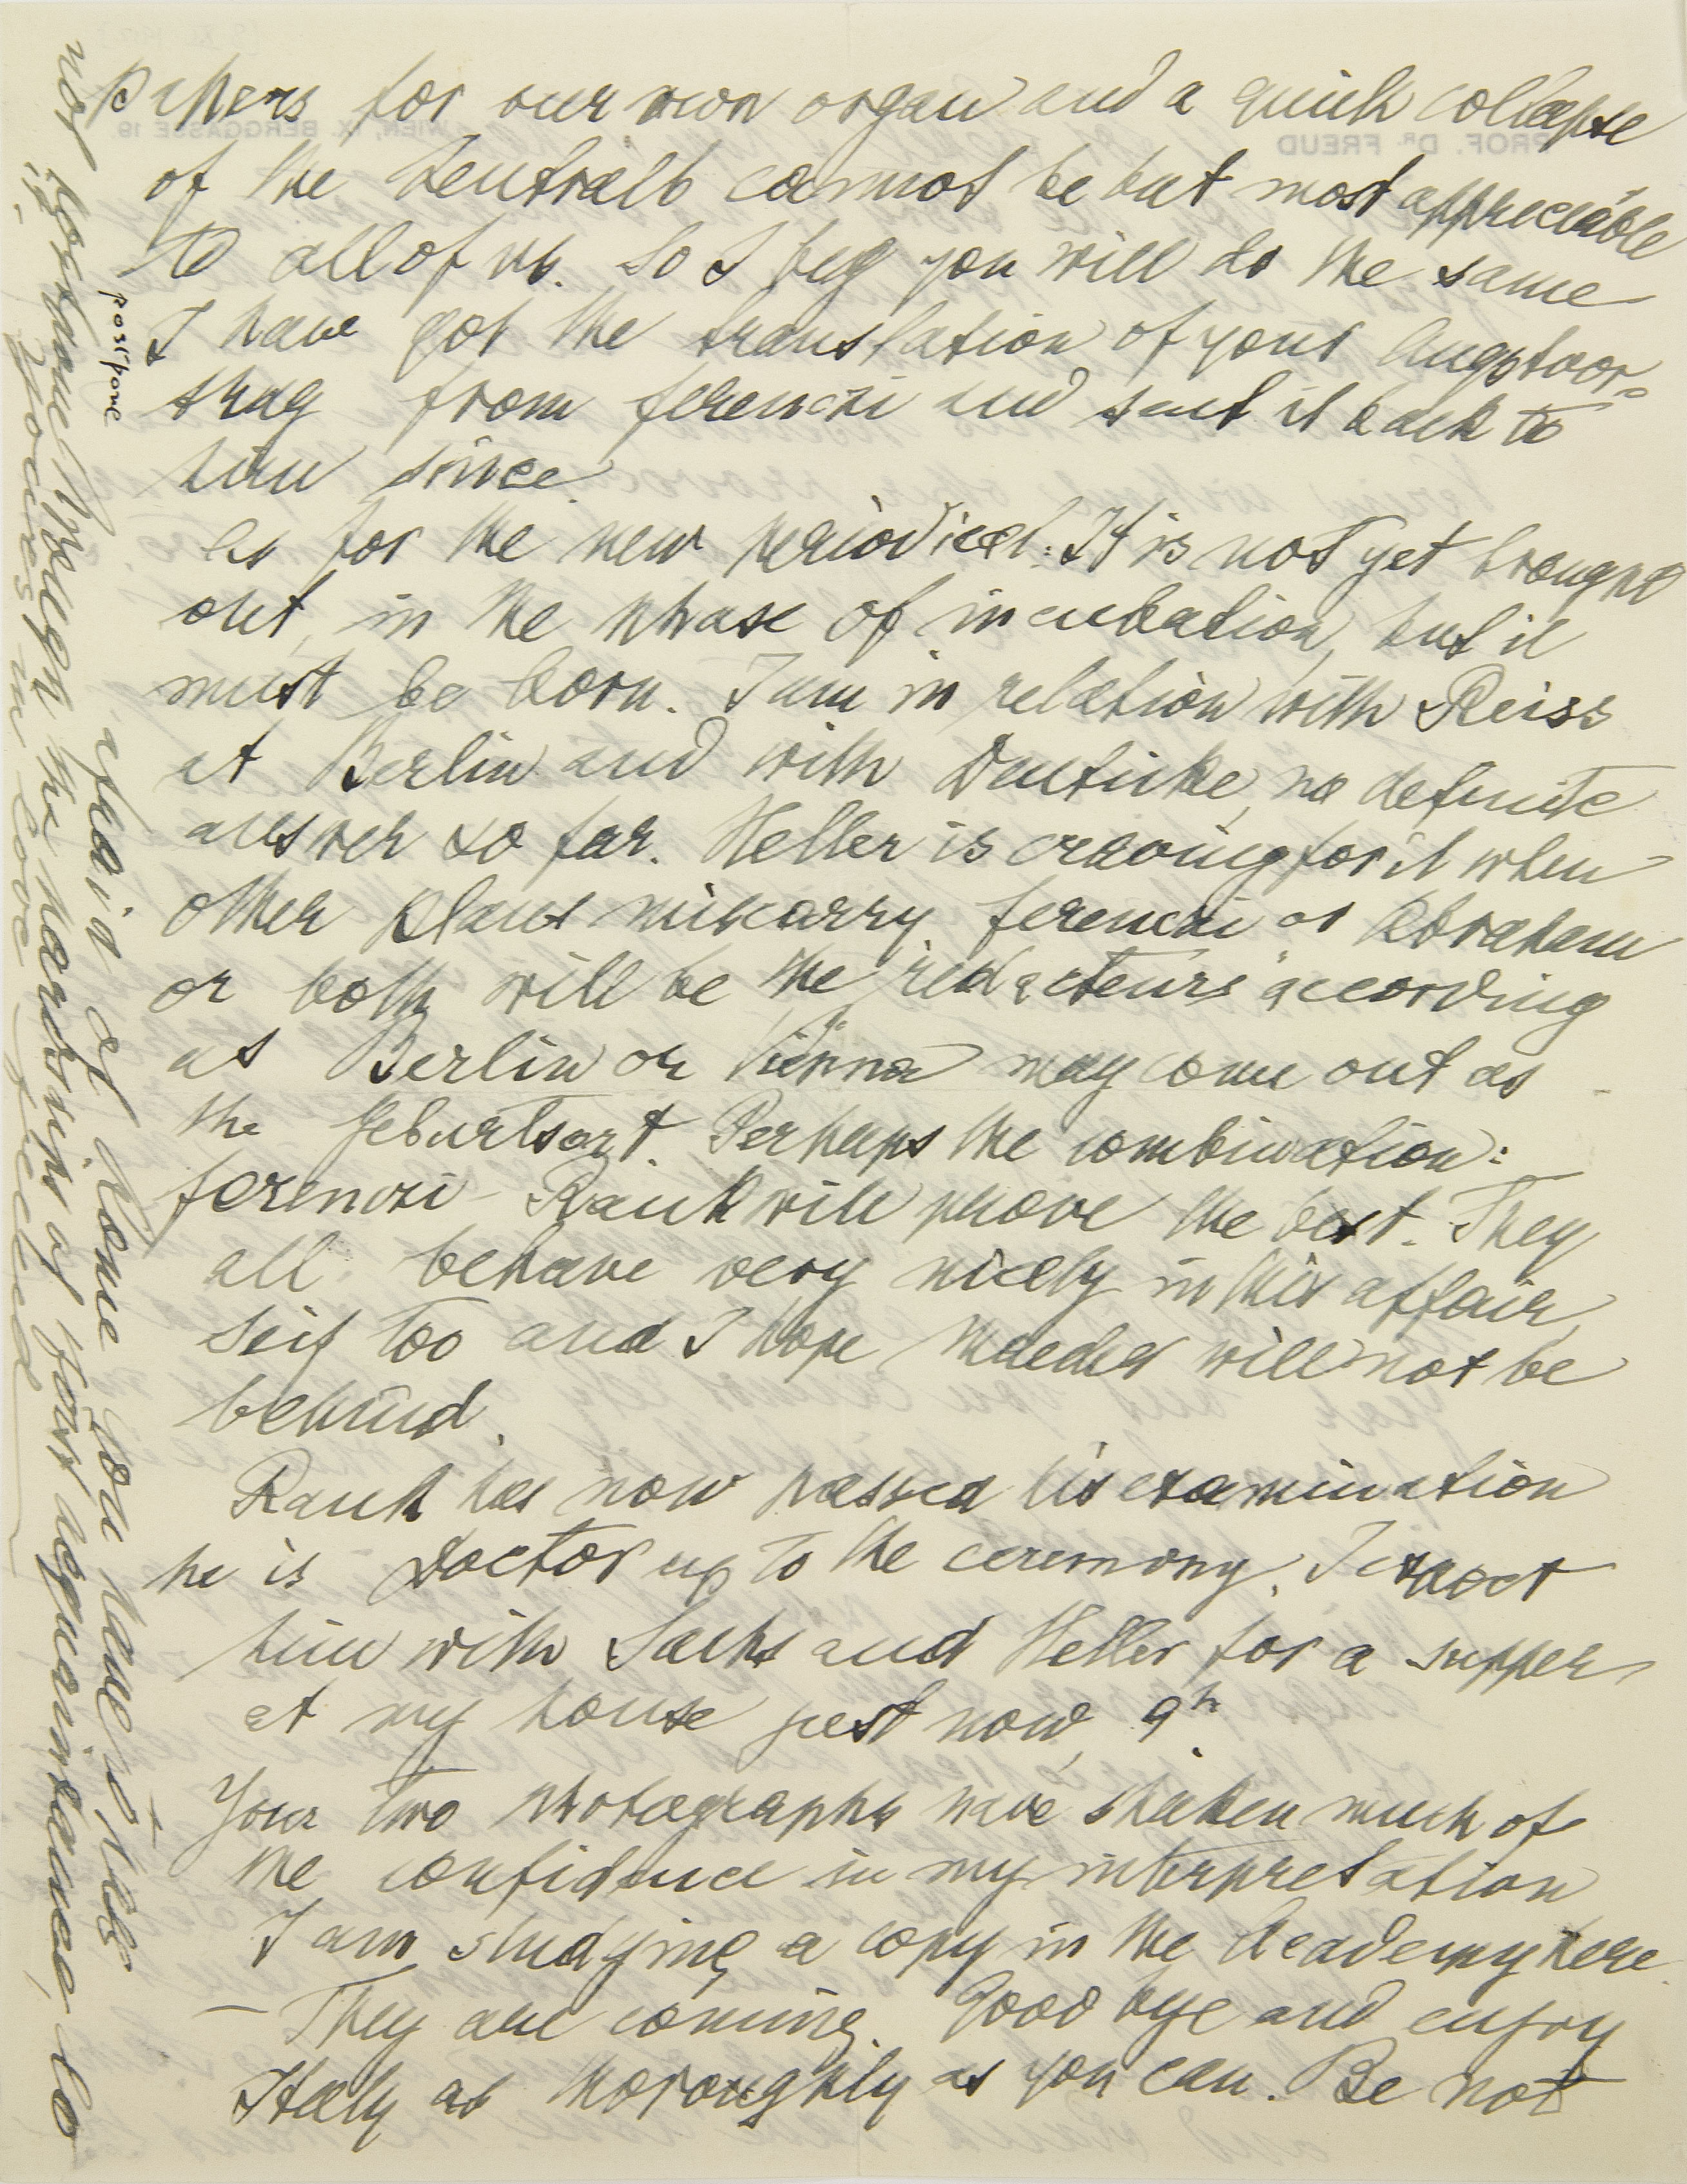 papers for our own organ and a quick collapse
of the Zentralb cannot be but most appreciable
to all of us. So I beg you will do the same
I have got the translation of your Angstvor-
trag from Ferenczi and sent it back to
him since.
As for the new periodical: It is not yet brought
out, in the phase of incubation, but it
must be born. I am in relation with Reiss
at Berlin and with Deuticke, no definite
answer so far. Heller is craving for it when
other plans miscarry. Ferenczi or Abraham
or both will be the "redacteurs" according
as Berlin or Vienna may come out as
the Geburtsort. Perhaps the combination:
Ferenczi - Rank will prove the best. They
all behave very nicely in this affair,
Seif too and I hope Maeder will not be
behind.
Rank has now passed his examination
he is Doctor up to the ceremony. I expect
him with Sachs and Heller for a supper
at my house just now, 9h.
Your two photographs have shaken much of
the confidence in my interpretation
I am studying a copy in the Academy here.
– They are coming. Good bye and enjoy
Italy as thoroughly as you can. Be not
afraid of Rome you have to
postpone
not personal between the of your acquaintance to
yours in love Freud